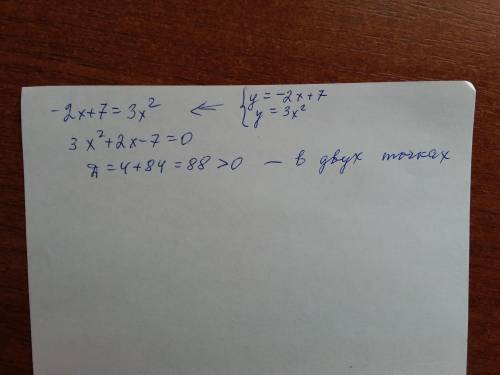 -2x+7=3x² ← { y=-2x+7
y=3x²
3x²+2x-7=0
D=4+84=88>0 — в двух точках